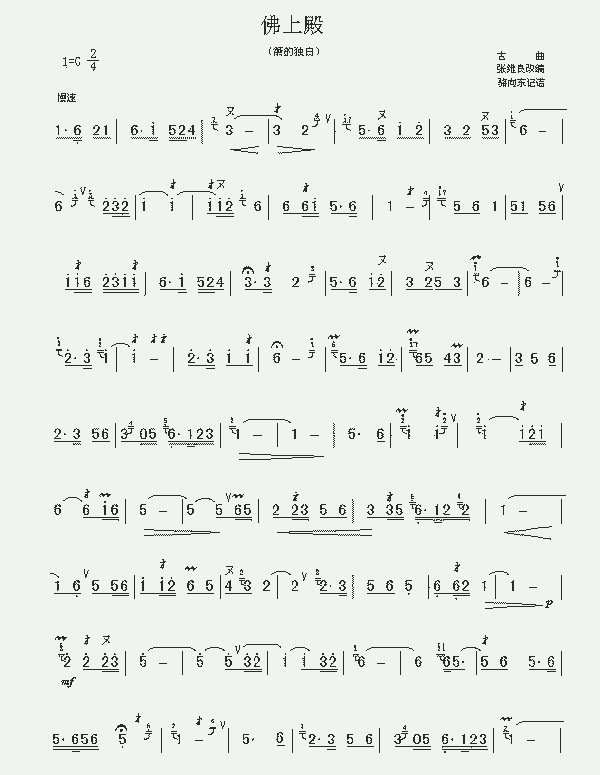 佛上殿
(箫的独白)
1=G 2/4
古 曲
张维良改编
骆向东记谱
慢速
1· 6 21 | 6· i 524 | 3 — | 3 2 | 5· 6 i 2 | 3 2 53 | 6 —
6 232 | i i | i i2 6 | 6 6i 5· 6 | 1 — | 5 6 1 | 51 56
ii6 23ii | 6· i 524 | 3· 3 2 | 5· 6 i2 | 3 25 3 | 6 — | 6 —
2· 3 i | i — | 2· 3 i i | 6 — | 5· 6 i2· | 65 43 | 2 · — | 3 5 6
2· 3 56 | 3 05 6· 123 | 1 — | 1 — | 5· 6 | i i | i i2i
6 6 i6 | 5 — | 5 5 65 | 2 23 5 6 | 3 35 6· 12 2 | 1 —
1 6 5 56 | i i2 6 5 | 4 3 2 | 2 2· 3 | 5 6 5 | 6 62 1 | 1 —
p
2 2 23 | 5 — | 5 5 32 | i i 32 | 6 — | 6 65· | 5 6 5· 6
mf
5· 656 5 | 1 — | 5· 6 | 2· 3 5 6 | 3 05 6· 123 | 1 —